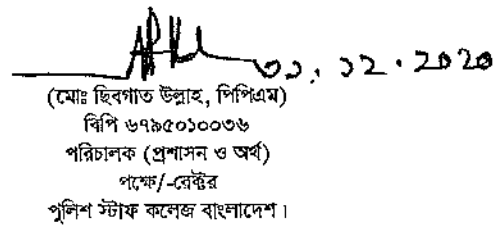 ৩১.১২.২০২০
(মোঃ ছিবগাত উল্লাহ, পিপিএম)
বিপি ৬৭৯৫০১০০৩৬
পরিচালক (প্রশাসন ও অর্থ)
পক্ষে/-রেক্টর
পুলিশ স্টাফ কলেজ বাংলাদেশ।